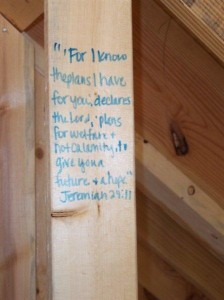 "'For I know
the plans I have
for you, declares
the Lord, 'plans
for welfare +
not calamity, to
give you a
future + a hope'"
Jeremiah 29:11